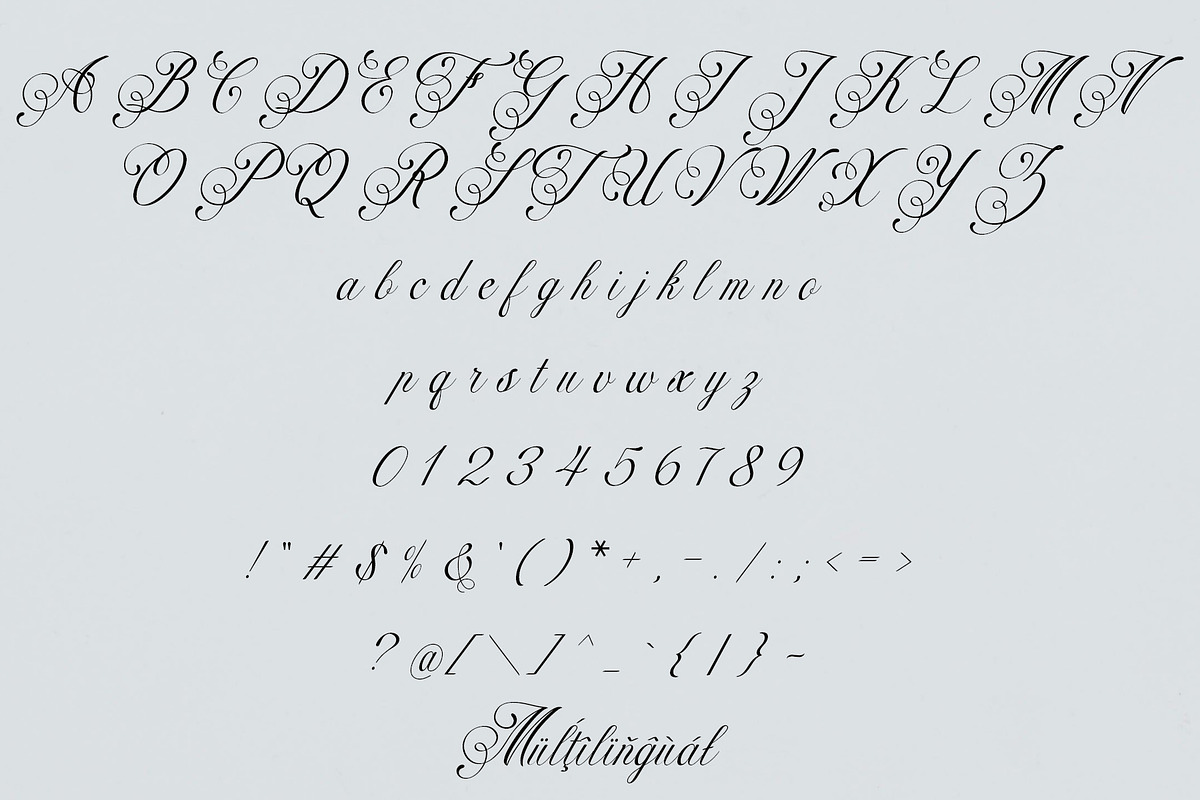 A B C D E F G H I J K L M N
O P Q R S T U V W X Y Z
a b c d e f g h i j k l m n o
p q r s t u v w x y z
0 1 2 3 4 5 6 7 8 9
! " # $ % & ' ( ) * + , - . / : ; < = >
? @ [ \ ] ^ _ ` { | } ~
Müļţíľïňĝùáł